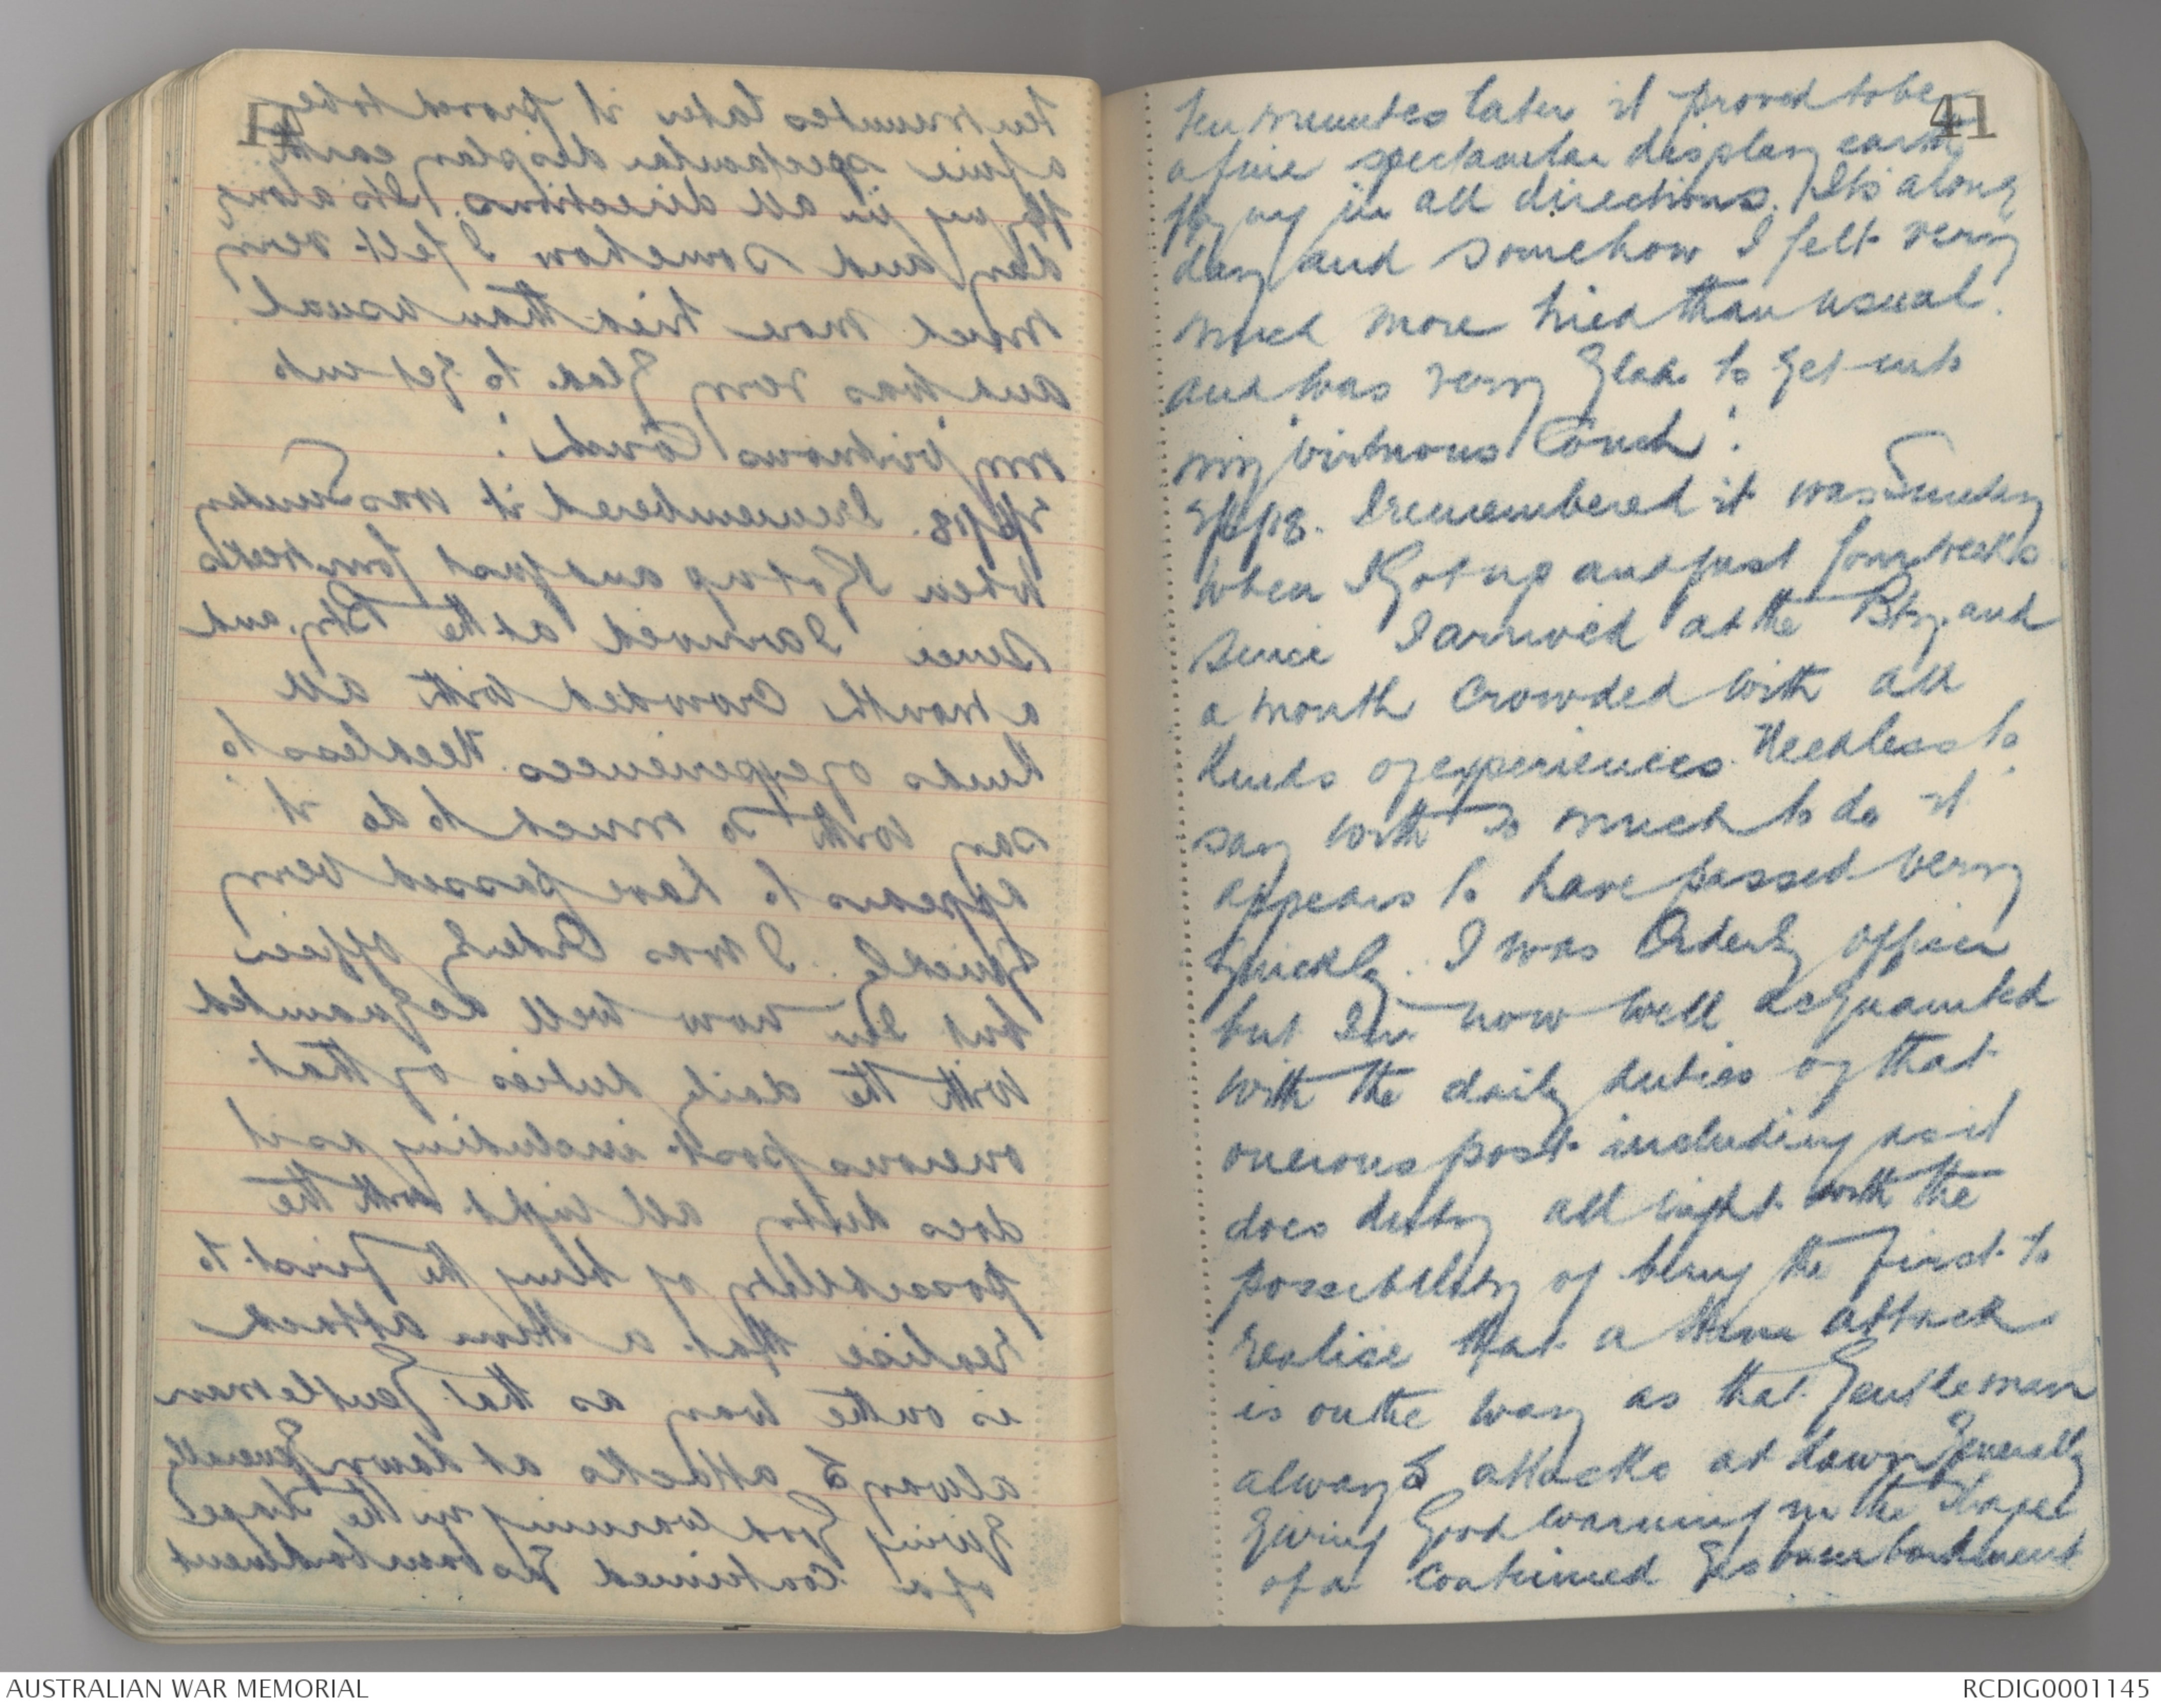 41
ten minutes later it proved to be
a fine spectacular display earth
flying in all directions. Its a long
day and somehow I felt very
much more tired than usual
and was very glad to get into
my 'virtuous couch'.
Sept 18. I remembered it was Sunday
when I got up and just four weeks
since I arrived at the Bty. and
a month crowded with all
kinds of experiences. Needless to
say with so much to do it
appears to have passed very
quickly. I was Orderly officer
but I'm now well acquainted
with the daily duties of that
onerous post including as it
does duty all night with the
possibility of being the first to
realise that a Hun attack
is on the way as that gentleman
always attacks at dawn generally
giving good warning in the shape
of a continued gas bombardment
AUSTRALIAN WAR MEMORIAL
RCDIG0001145